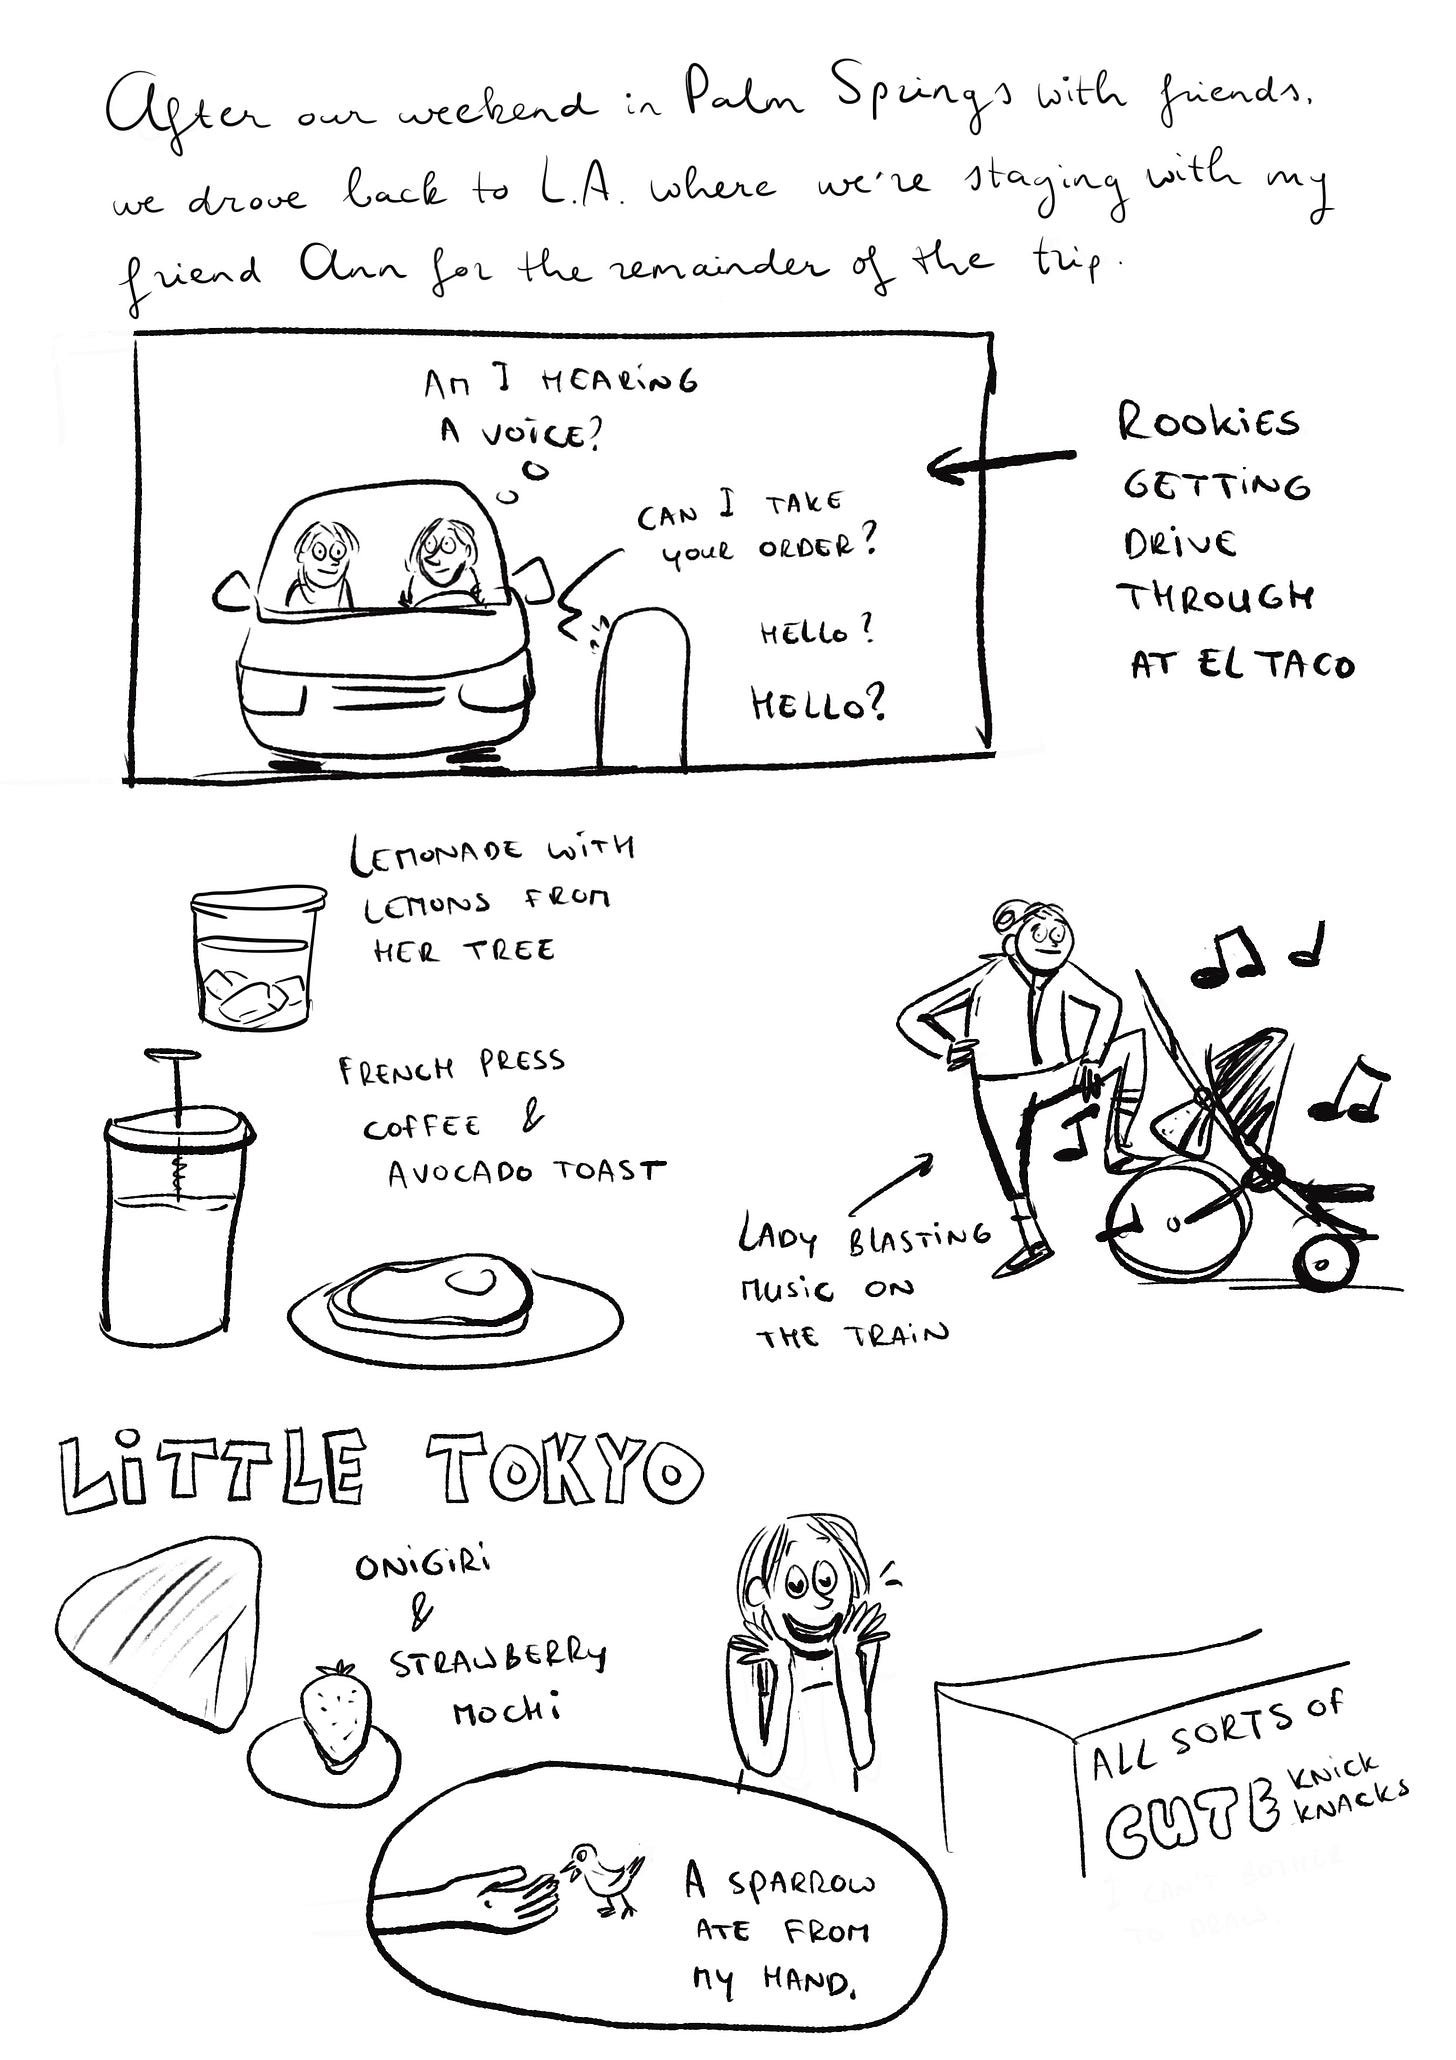 After our weekend in Palm Springs with friends,
we drove back to L.A. where we're staging with my
friend Ann for the remainder of the trip.
AM I HEARING
A VOICE?
CAN I TAKE
YOUR ORDER?
HELLO?
HELLO?
ROOKIES
GETTING
DRIVE
THROUGH
AT EL TACO
LEMONADE WITH
LEMONS FROM
HER TREE
FRENCH PRESS
COFFEE &
AVOCADO TOAST
LADY BLASTING
MUSIC ON
THE TRAIN
LITTLE TOKYO
ONIGIRI
&
STRAWBERRY
MOCHI
ALL SORTS OF
CUTE KNICK
KNACKS
I CAN'T BOTHER
TO DRAW.
A SPARROW
ATE FROM
MY HAND.